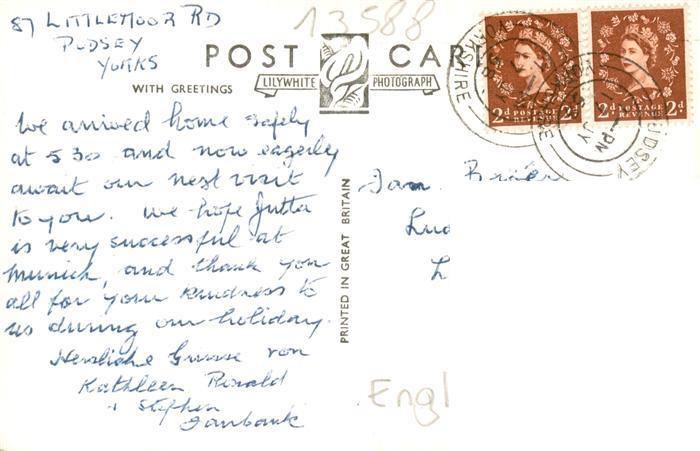 87 LITTLEMOOR RD
PUDSEY
YORKS
13588
POST CAR
LILYWHITE PHOTOGRAPH
WITH GREETINGS
We arrived home safely
at 5 30 and now eagerly
await our next visit
to you. We hope Jutta
is very successful at
Munich, and thank you
all for your kindness to
us during our holiday.
Herzliche Grüsse von
Kathleen Ronald
+ Stephen
Fairbank
PRINTED IN GREAT BRITAIN
Fam.
Lud
L
Engl
2d POSTAGE REVENUE 2d
2d POSTAGE REVENUE 2d
YORKSHIRE
PUDSEY
JY
PM